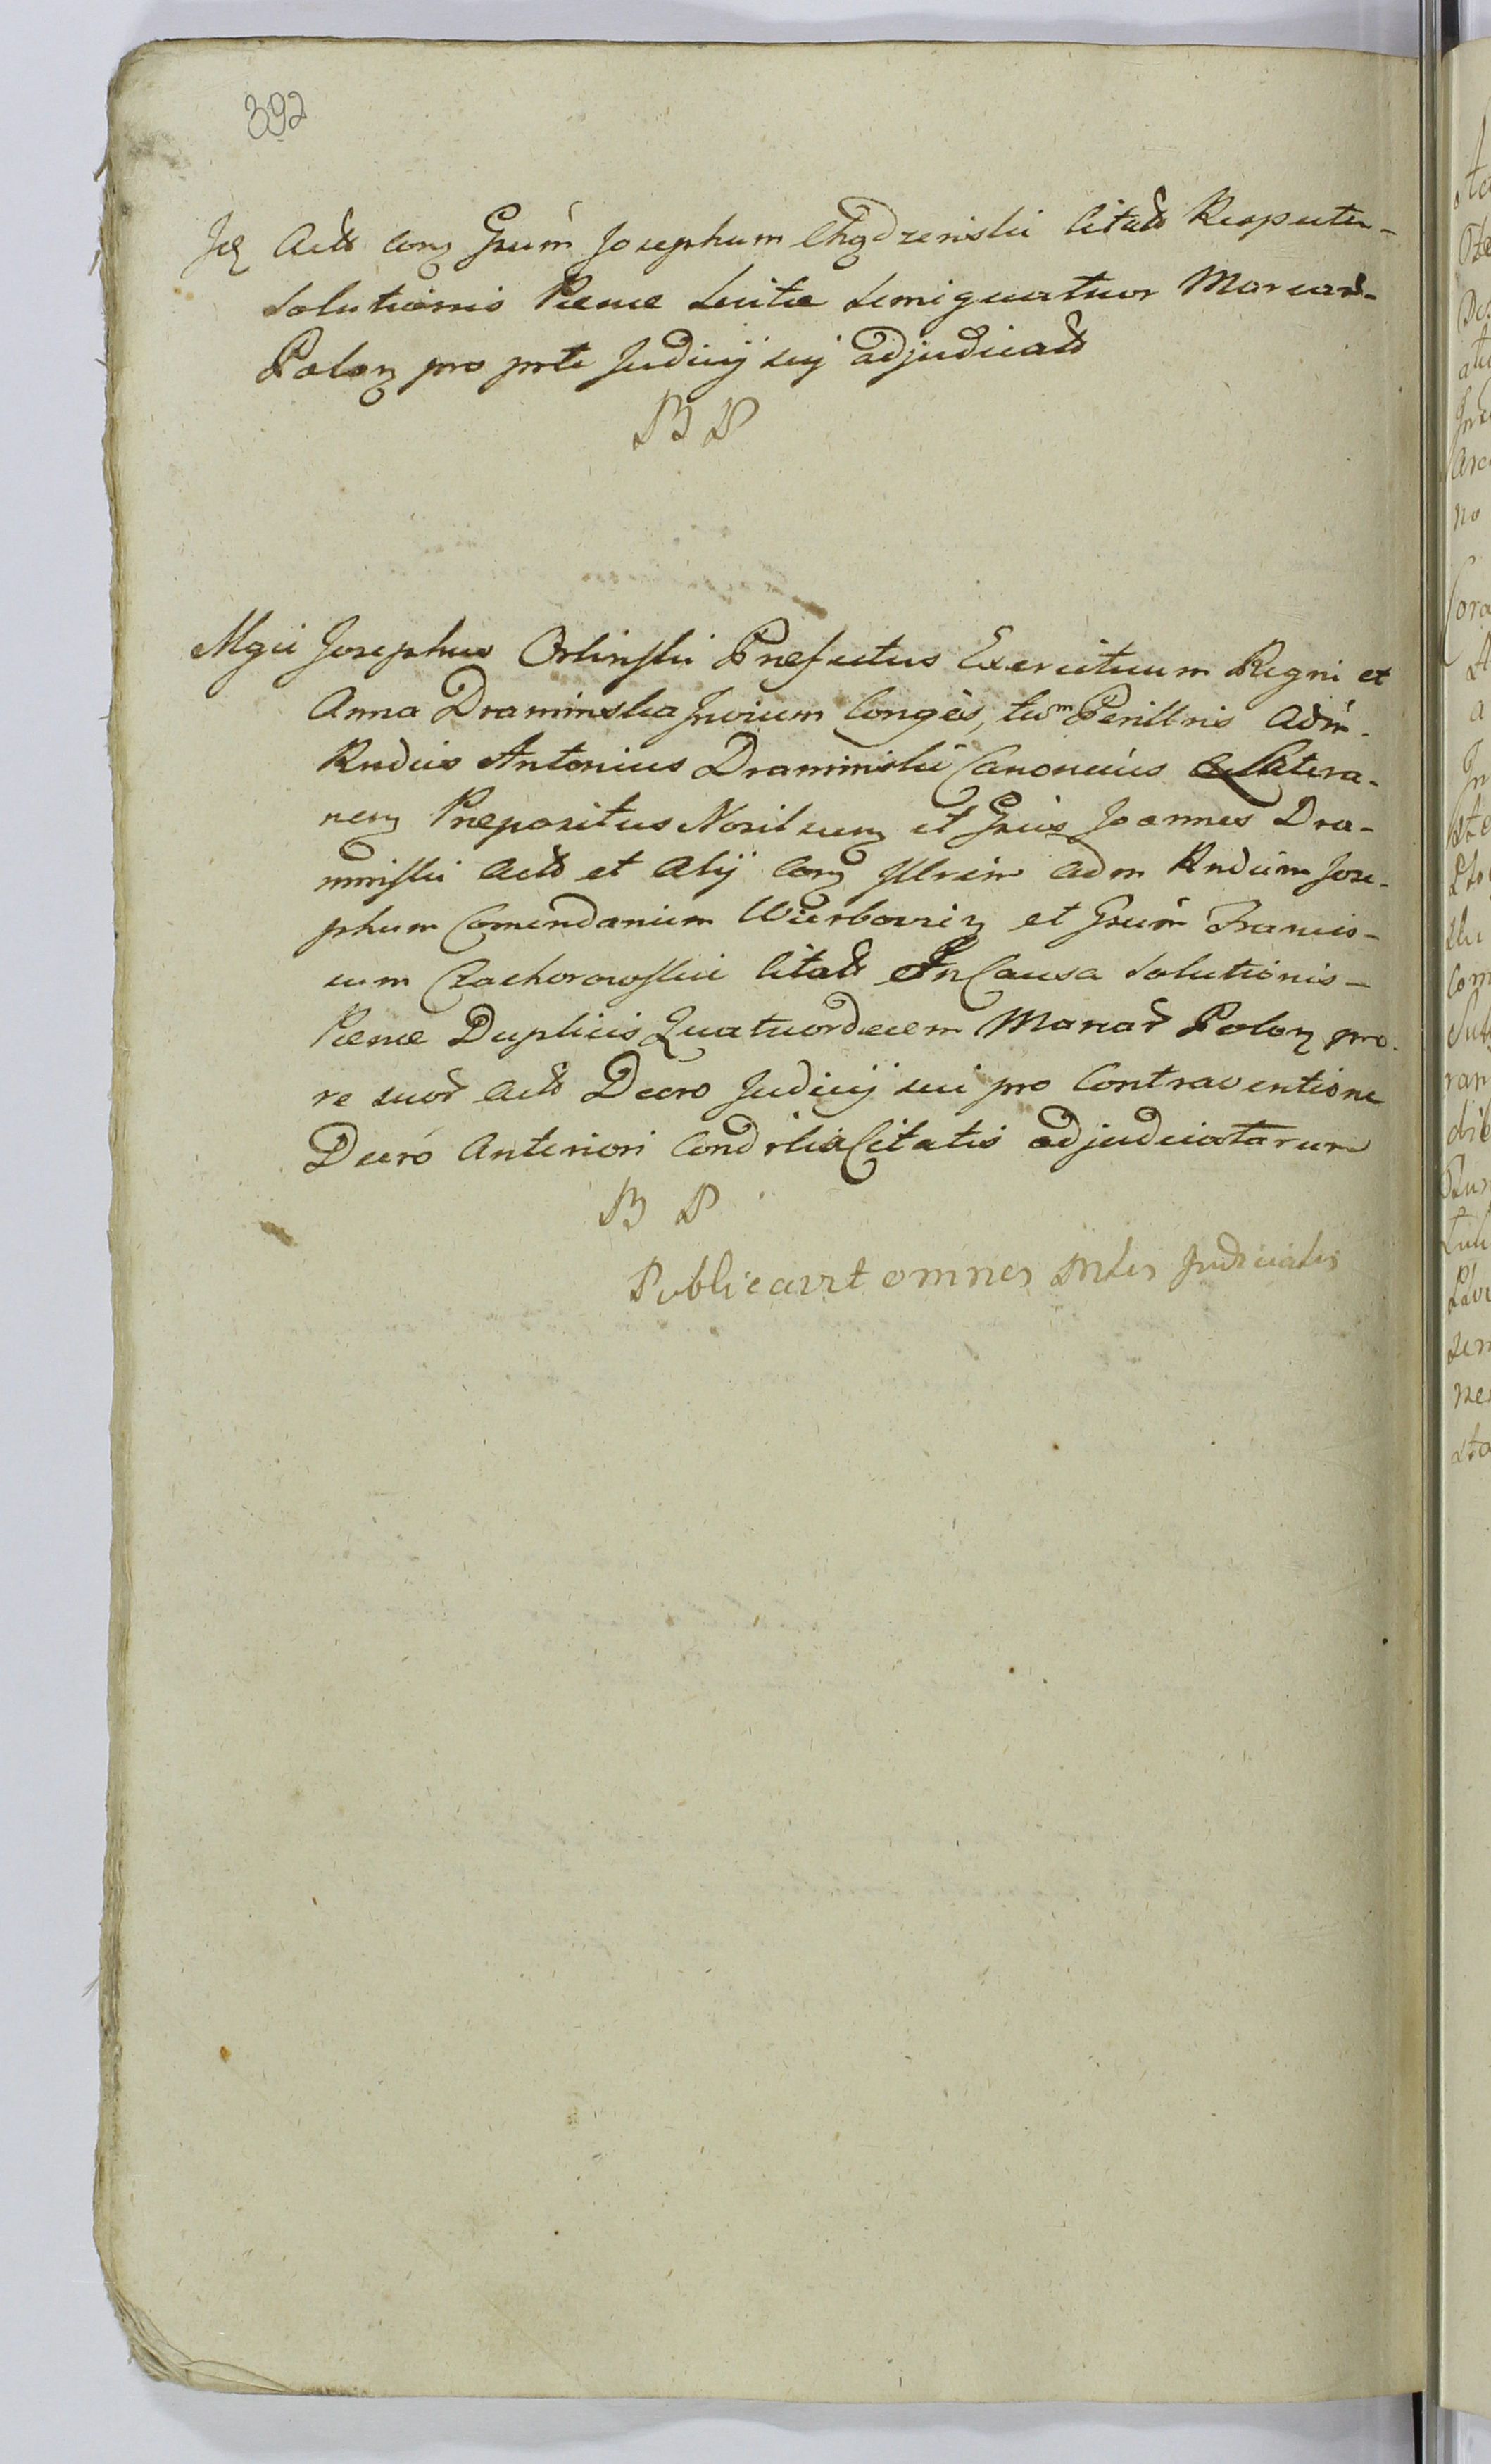 392
Id Actd con Grum Josephum Chądzeński Citatd Respectu
Solutionis Pœnæ luitæ semiquatuor Marcar-
Polon pro prte Judicij sui adjudicatd
B P
Mgci Josephus Orlinski Præfectus Exercituum Regni et
Anna Draminska Invicem Conges, tum Perillris Adm
Rndus Antonius Draminski Canonicus Latera-
nen Præpositus Nosilscen et Grus Joannes Dra-
minski Actd et Alij Con Illrem Adm Rndum Jose-
phum Comendarium Wierbovien et Grum Francis-
cum Czachorowski Citatd In Causa Solutionis-
Pœnæ Duplicis Quatuordecem Marcar Polon pro
re suor Actd Decro Judicij sui pro Contraventione
Decro Anteriori Condrlia Citatis adjudicatarum
B P
Publicavit omnes Prtes Judicialis